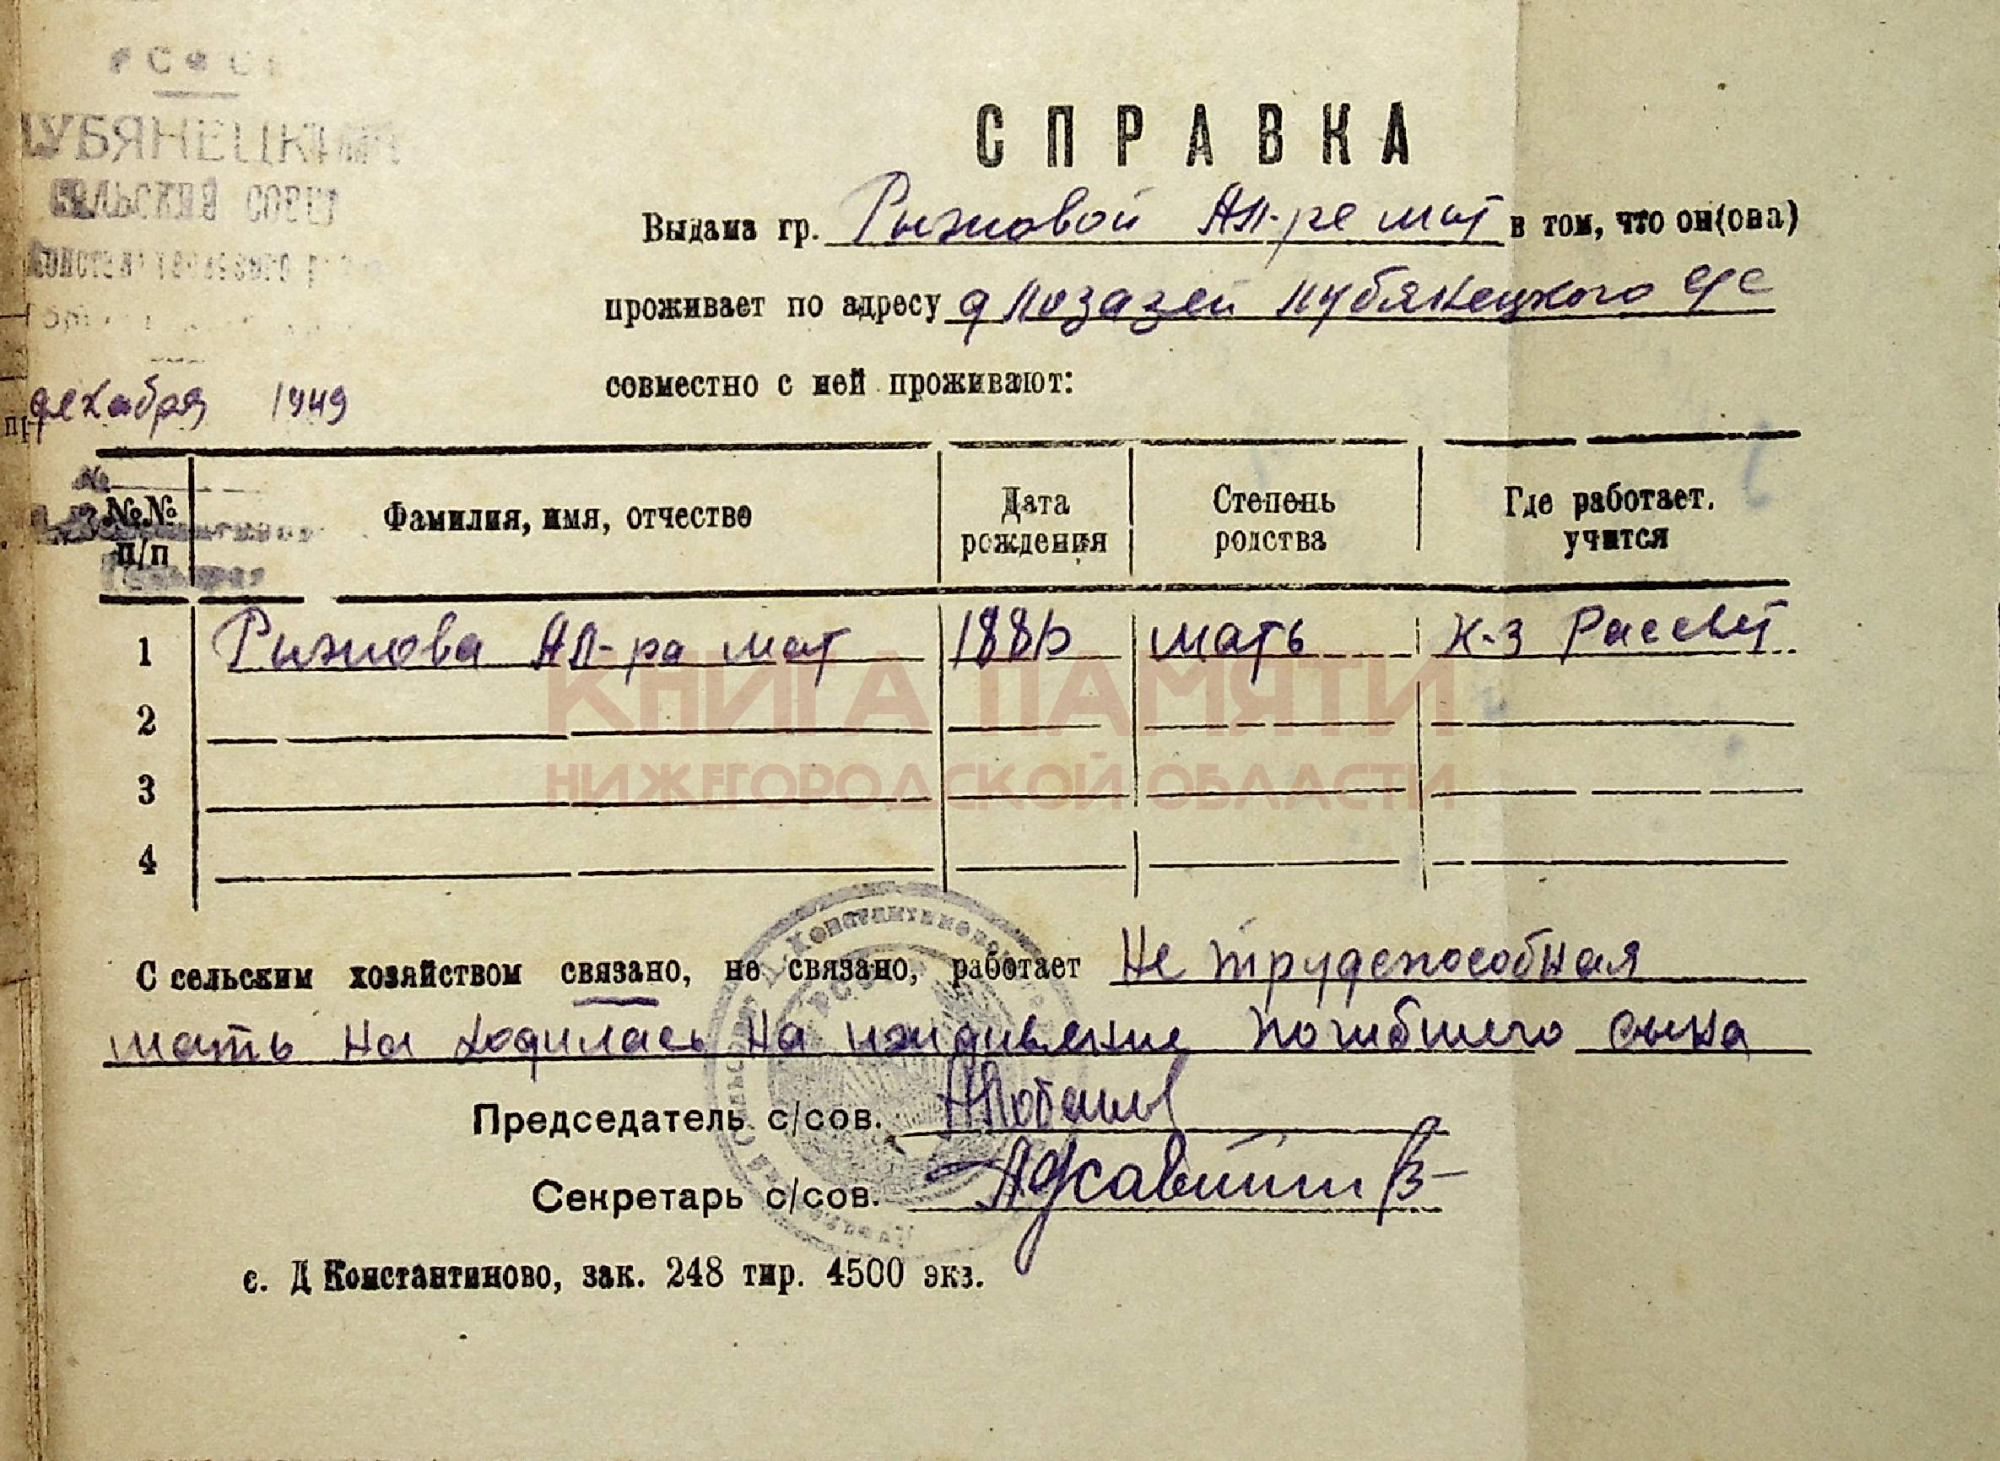 СЕЛЬСКИЙ СОВЕТ
декабря 1949
СПРАВКА
Выдана гр. Рыжовой Ал-ре мат в том, что он(она)
проживает по адресу д Лубянецкого с/с
совместно с ней проживают:
№№ п/п
Фамилия, имя, отчество
Дата рождения
Степень родства
Где работает. учится
1 Рыжова Ал-ра мат мать к-з Рассвет
2
3
4
КНИГА ПАМЯТИ
НИЖЕГОРОДСКОЙ ОБЛАСТИ
С сельским хозяйством связано, не связано, работает Не трудспособная
мать на ходилась на иждивение погибшего сына
Председатель с/сов.
Секретарь с/сов.
с. Д Константиново, зак. 248 тир. 4500 экз.